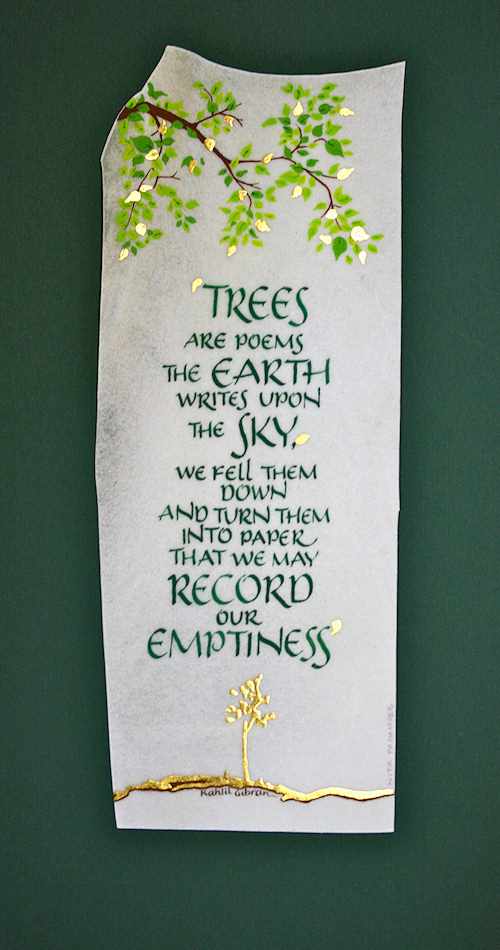 'TREES
ARE POEMS
THE EARTH
WRITES UPON
THE SKY,
WE FELL THEM
DOWN
AND TURN THEM
INTO PAPER
THAT WE MAY
RECORD
OUR
EMPTINESS'
Kahlil Gibran